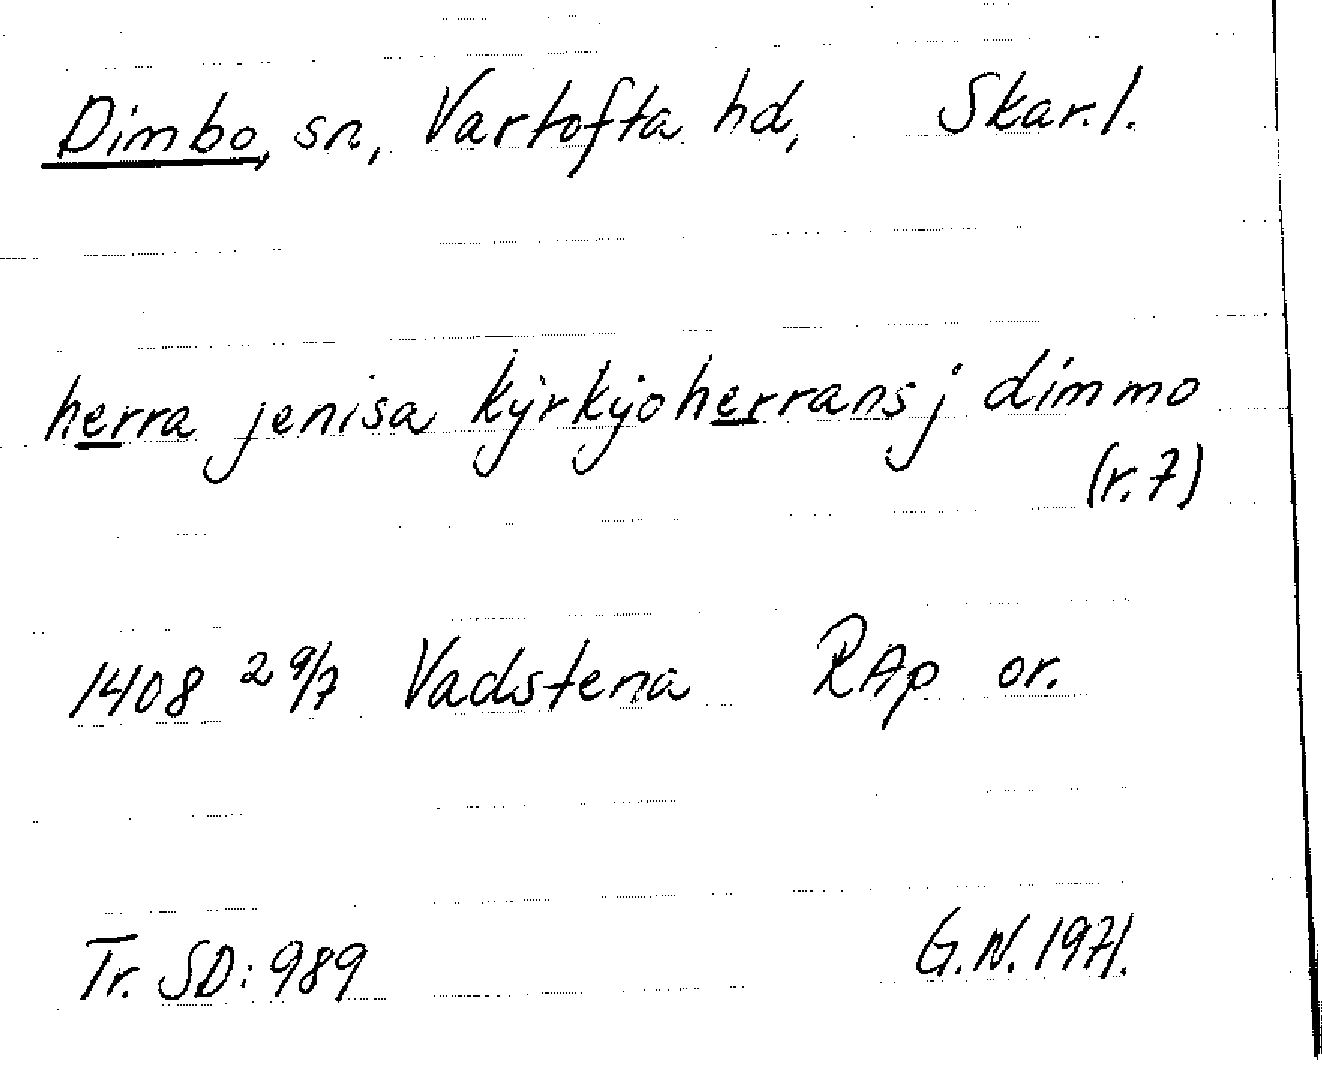 Dimbo, sn, Vartofta hd, Skar. l.
herra jenisa kyrkyoherrans j dimmo
(r. 7)
1408 29/7 Vadstena RAp or.
Tr. SD: 989 G.N. 1971.